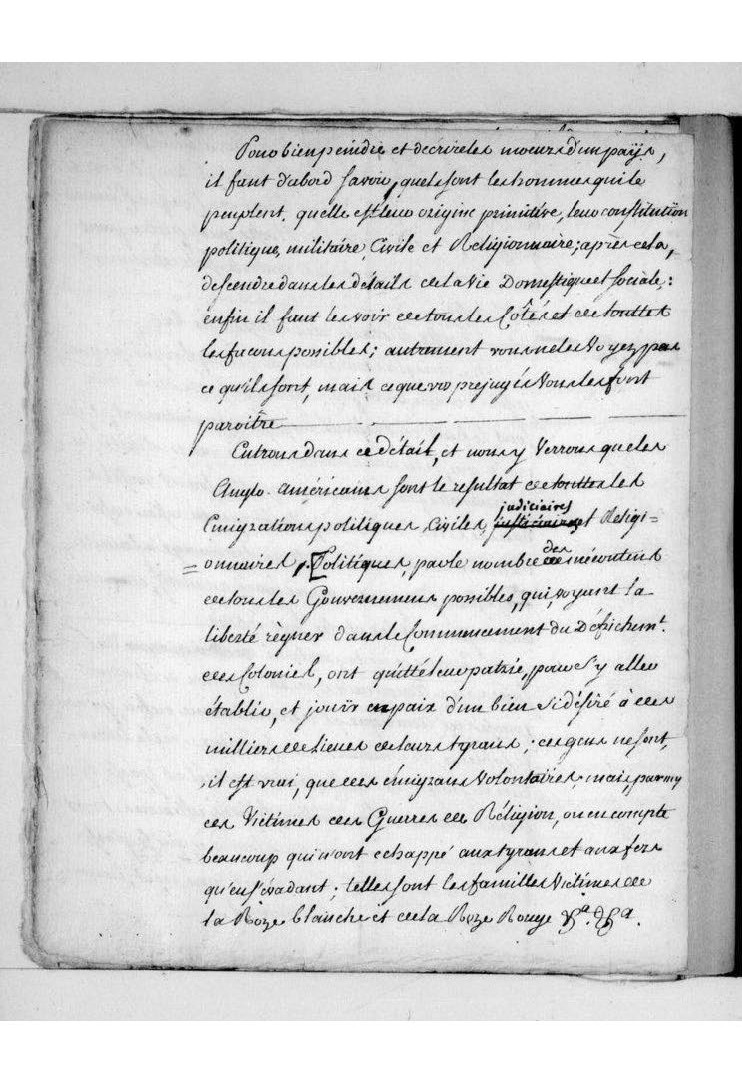 Pour bien peindre et décrire les mœurs d'un païs,
il faut d'abord savoir, quels sont les hommes qui le
peuplent. quelle est leur origine primitive, leur constitution
politique, militaire, Civile et Réligionnaire; après cela,
descendre dans les détails de la vie Domestique et sociale:
enfin il faut les voir de tous les Côtés et de touttes
les façons possibles; autrement vous ne les voyez pas
ce qu'ils sont, mais ce que vos prejugés vous les font
paroître
Entrons dans ce détail, et nous y verrons que les
Anglo-américains sont le resultat de touttes les
Emigrations politiques, Civiles, judiciaires et Religi=
=onnaires. [Politiques, par le nombre des mécontens
de tous les Gouvernemens possibles, qui, voyant la
liberté règner dans le Commencement du Défrichemt.
des Colonies, ont quitté leur patrie, pour s'y aller
établir, et jouïr en paix d'un bien si désiré à des
milliers de lieues de leurs tyrans; ces gens ne sont,
il est vrai, que des émigrans volontaires. mais, parmy
ces Victimes des Guerres de Réligion, on en compte
beaucoup qui n'ont echappé aux tyrans et aux fers
qu'en s'évadant; telles sont les familles victimes de
la Roze blanche et de la Roze Rouge &a. &a.